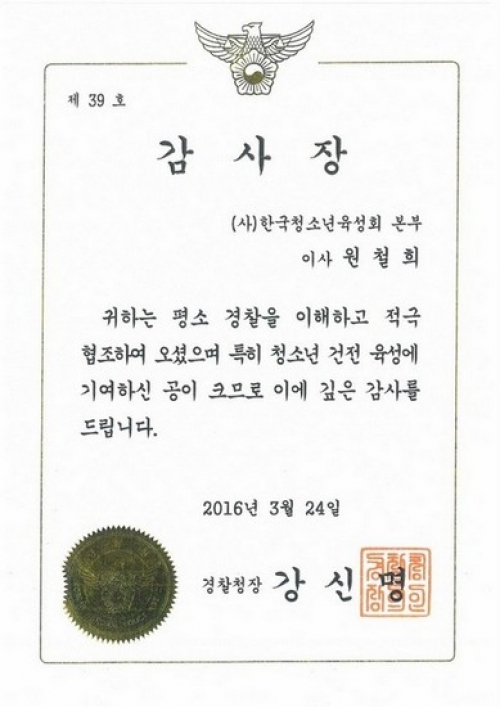 제 39 호
감 사 장
(사)한국청소년육성회 본부
이사 원 철 희
귀하는 평소 경찰을 이해하고 적극
협조하여 오셨으며 특히 청소년 건전 육성에
기여하신 공이 크므로 이에 깊은 감사를
드립니다.
2016년 3월 24일
경찰청장 강 신 명